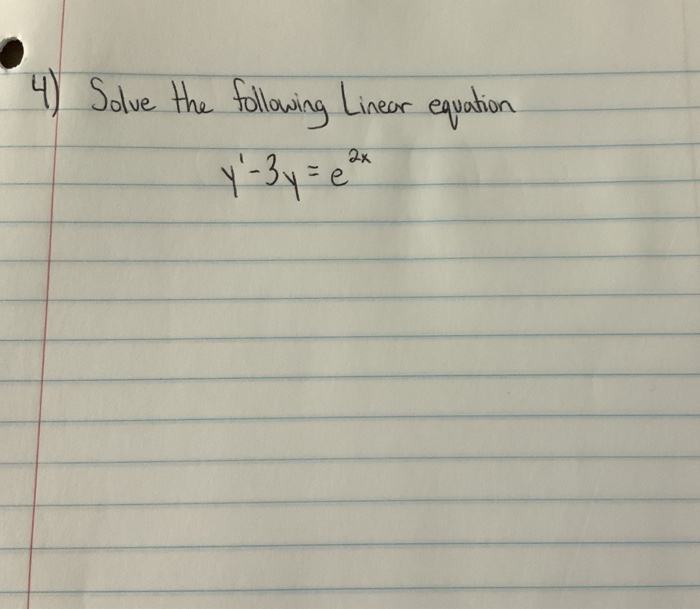 4) Solve the following Linear equation
y' - 3y = e^{2x}